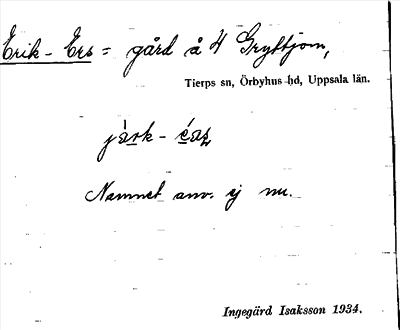 Erik-Ers = gård å 4 Gryttjom,
Tierps sn, Örbyhus hd, Uppsala län.
Namnet anv. ej nu.
Ingegärd Isaksson 1934.